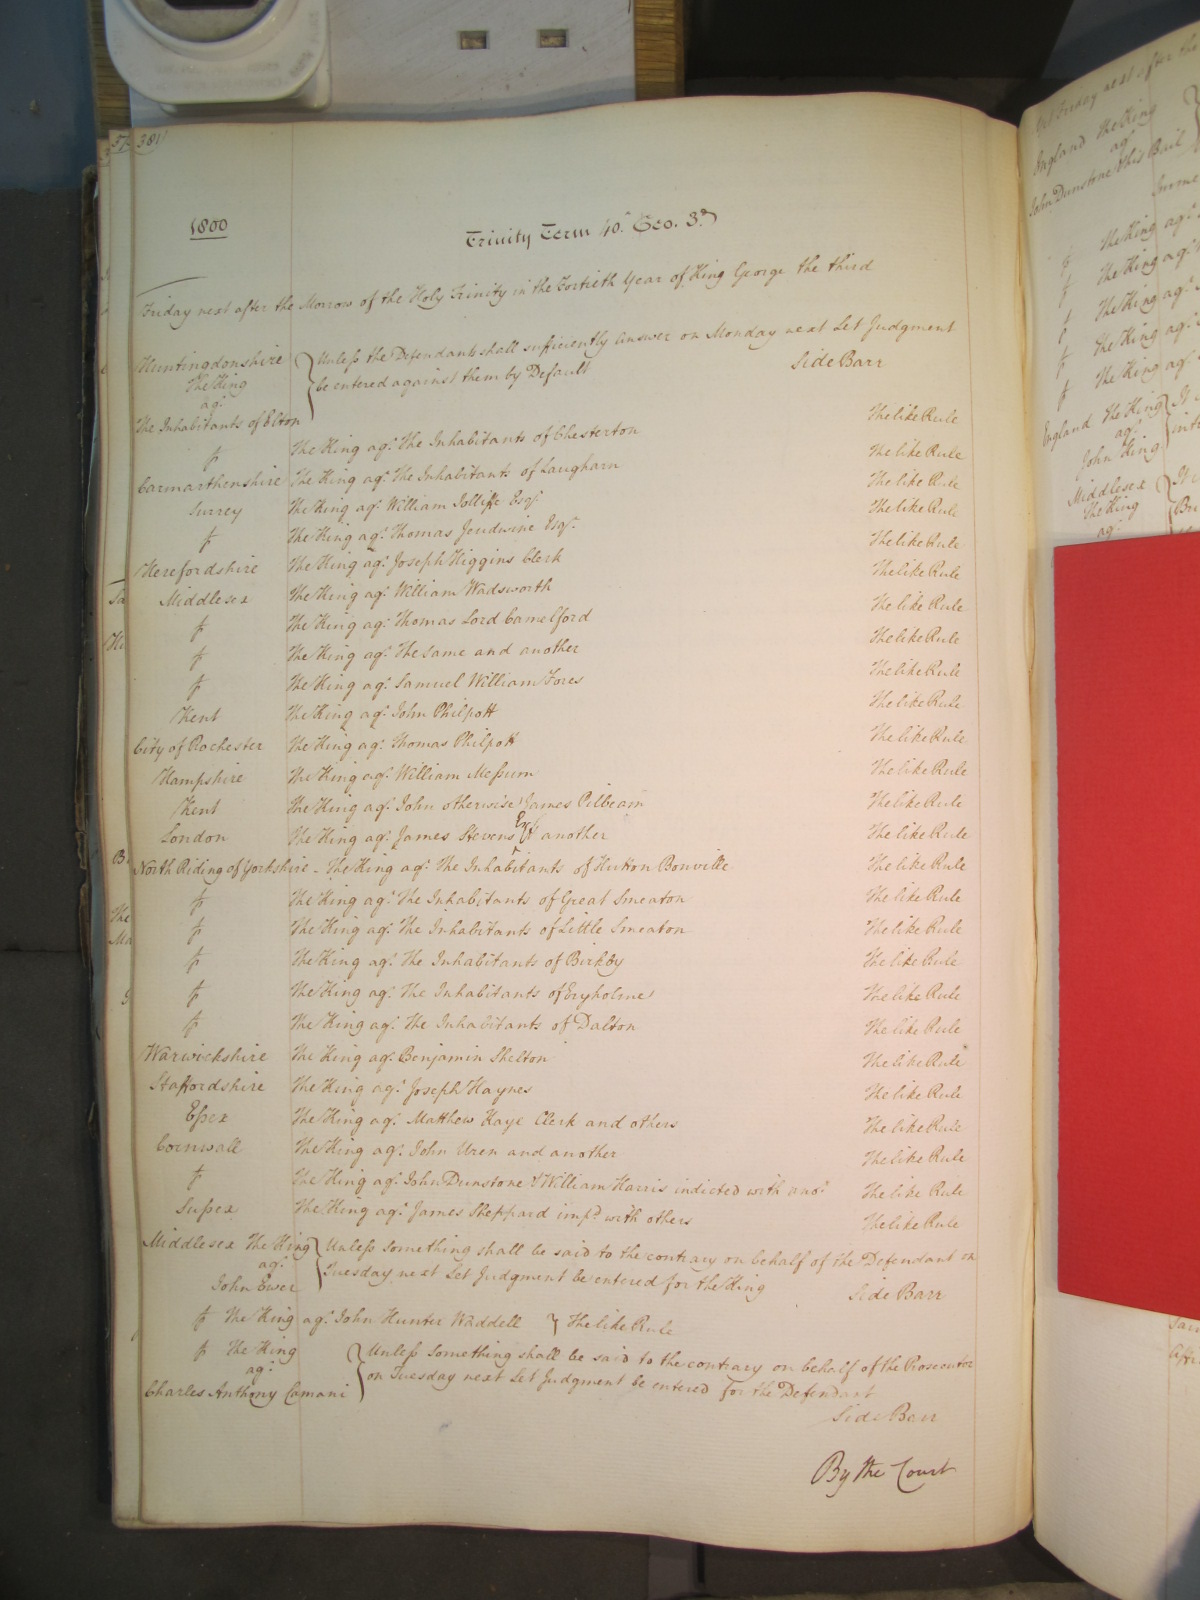 381
1800
Trinity Term 40th Geo. 3d
Friday next after the Morrow of the Holy Trinity in the Fortieth Year of King George the third
Huntingdonshire Unless the Defendants shall sufficiently answer on Monday next Let Judgment
The King be entered against them by Default Side Barr
agt
The Inhabitants of Elton
The King agt The Inhabitants of Chesterton The like Rule
Carmarthenshire The King agt The Inhabitants of Laugharn The like Rule
Surrey The King agt William Jolliffe Esqr The like Rule
The King agt Thomas Jeudwine Esqr The like Rule
Herefordshire The King agt Joseph Higgins Clerk The like Rule
Middlesex The King agt William Wadsworth The like Rule
The King agt Thomas Lord Camelford The like Rule
The King agt The same and another The like Rule
The King agt Samuel William Fores The like Rule
Kent The King agt John Philpott The like Rule
City of Rochester The King agt Thomas Philpott The like Rule
Hampshire The King agt William Messum The like Rule
Kent The King agt John otherwise James Pilbeam The like Rule
London The King agt James Stevens Esq & another The like Rule
North Riding of Yorkshire - The King agt The Inhabitants of Hutton Bonville The like Rule
The King agt The Inhabitants of Great Smeaton The like Rule
The King agt The Inhabitants of Little Smeaton The like Rule
The King agt The Inhabitants of Birkby The like Rule
The King agt The Inhabitants of Eryholme The like Rule
The King agt The Inhabitants of Dalton The like Rule
Warwickshire The King agt Benjamin Shelton The like Rule
Staffordshire The King agt Joseph Haynes The like Rule
Essex The King agt Matthew Kaye Clerk and others The like Rule
Cornwall The King agt John Uren and another The like Rule
The King agt John Dunstone & William Harris indicted with anor The like Rule
Sussex The King agt James Sheppard impd with others The like Rule
Middlesex The King Unless something shall be said to the contrary on behalf of the Defendant on
agt Tuesday next Let Judgment be entered for the King
John Ewer Side Barr
The King agt John Hunter Waddell The like Rule
The King Unless something shall be said to the contrary on behalf of the Prosecutor
agt on Tuesday next Let Judgment be entered for the Defendant
Charles Anthony Camani
Side Barr
By the Court